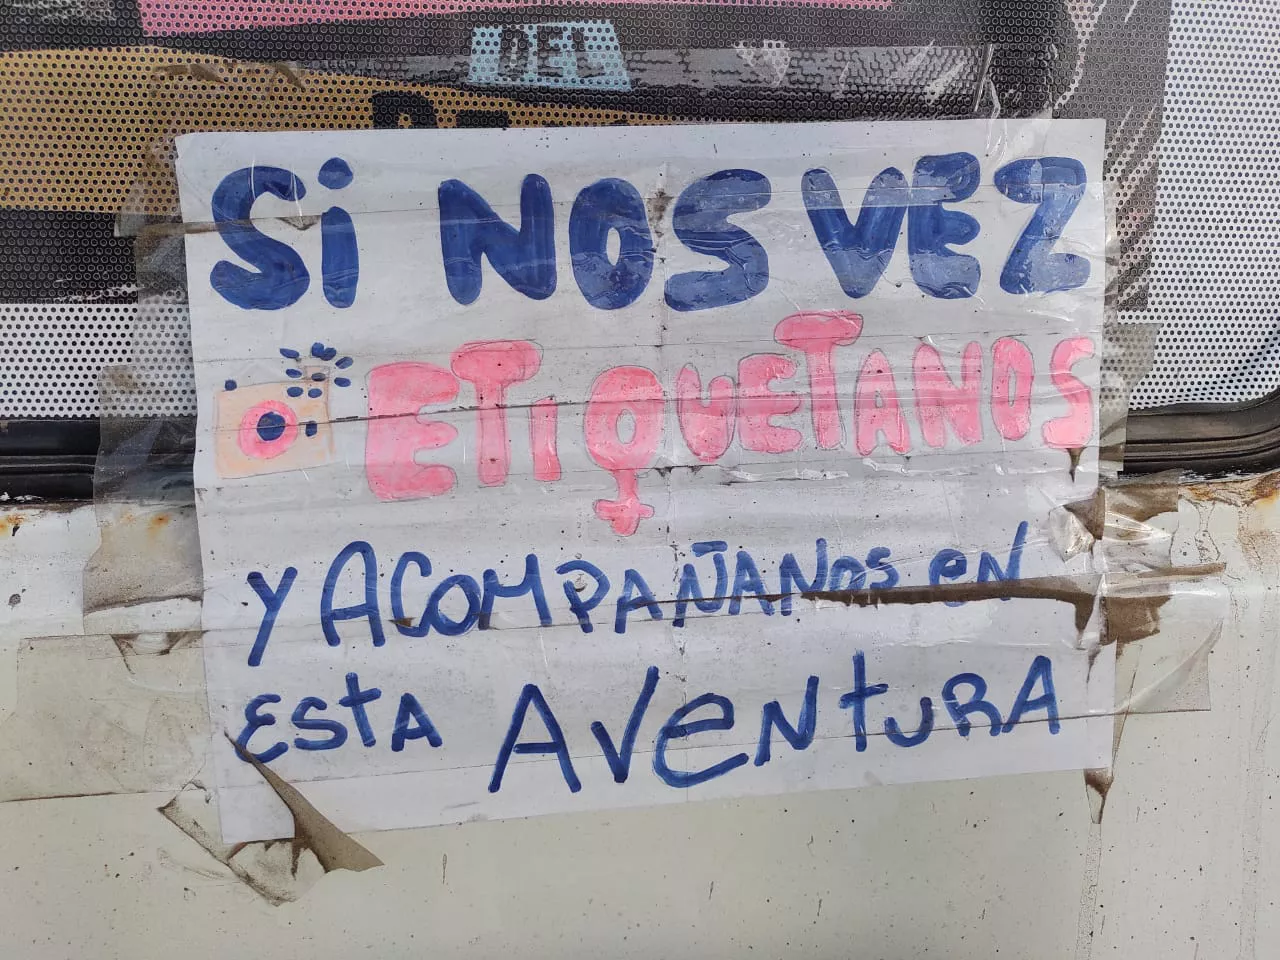 DEL
Si NOS VEZ
ETiQUETANOS
Y ACOMPAÑANOS eN
ESTA AVeNTURA